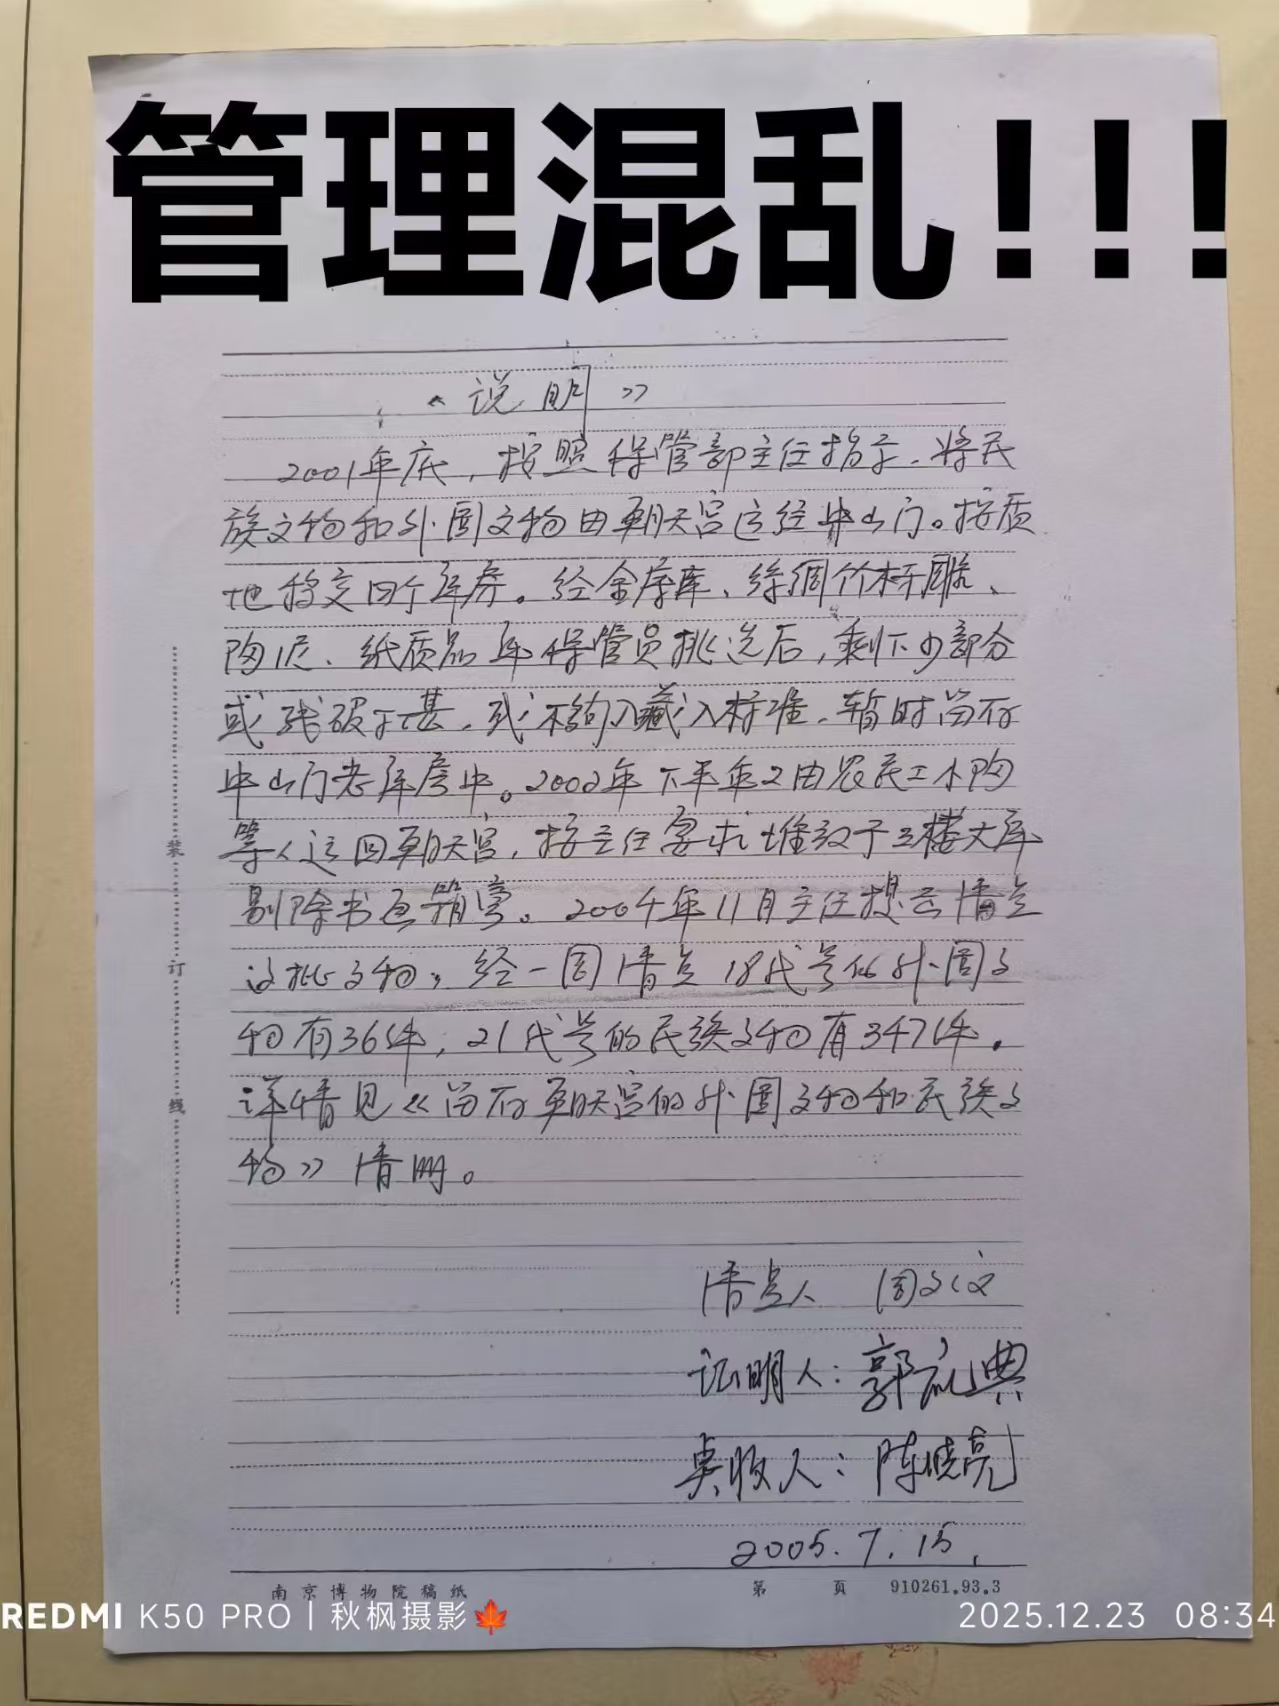 管理混乱!!!
《说明》
2001年底，按照保管部主任指示，将民
族文物和外国文物由朝天宫运经中山门。按质
地移交四个库房。经金库、丝绸竹木牙雕、
陶瓷、纸质品库保管员挑选后，剩下少部分
或残破不甚，或不够入藏入标准，暂时留存
中山门老库房中。2002年下半年又由农民工小陶
等人运回朝天宫，按主任要求堆放于三楼大库
剔除书画箱旁。2004年11月主任提出清点
这批文物，经一周清点18代号的外国文
物有36件，21代号的民族文物有347件。
详情见《留存朝天宫的外国文物和民族文
物》清册。
清点人 周文
证明人：郭礼典
点收人：陈晓亮
2005.7.15.
装
订
线
南京博物院稿纸 第 页 910261.93.3
REDMI K50 PRO | 秋枫摄影🍁 2025.12.23 08:34